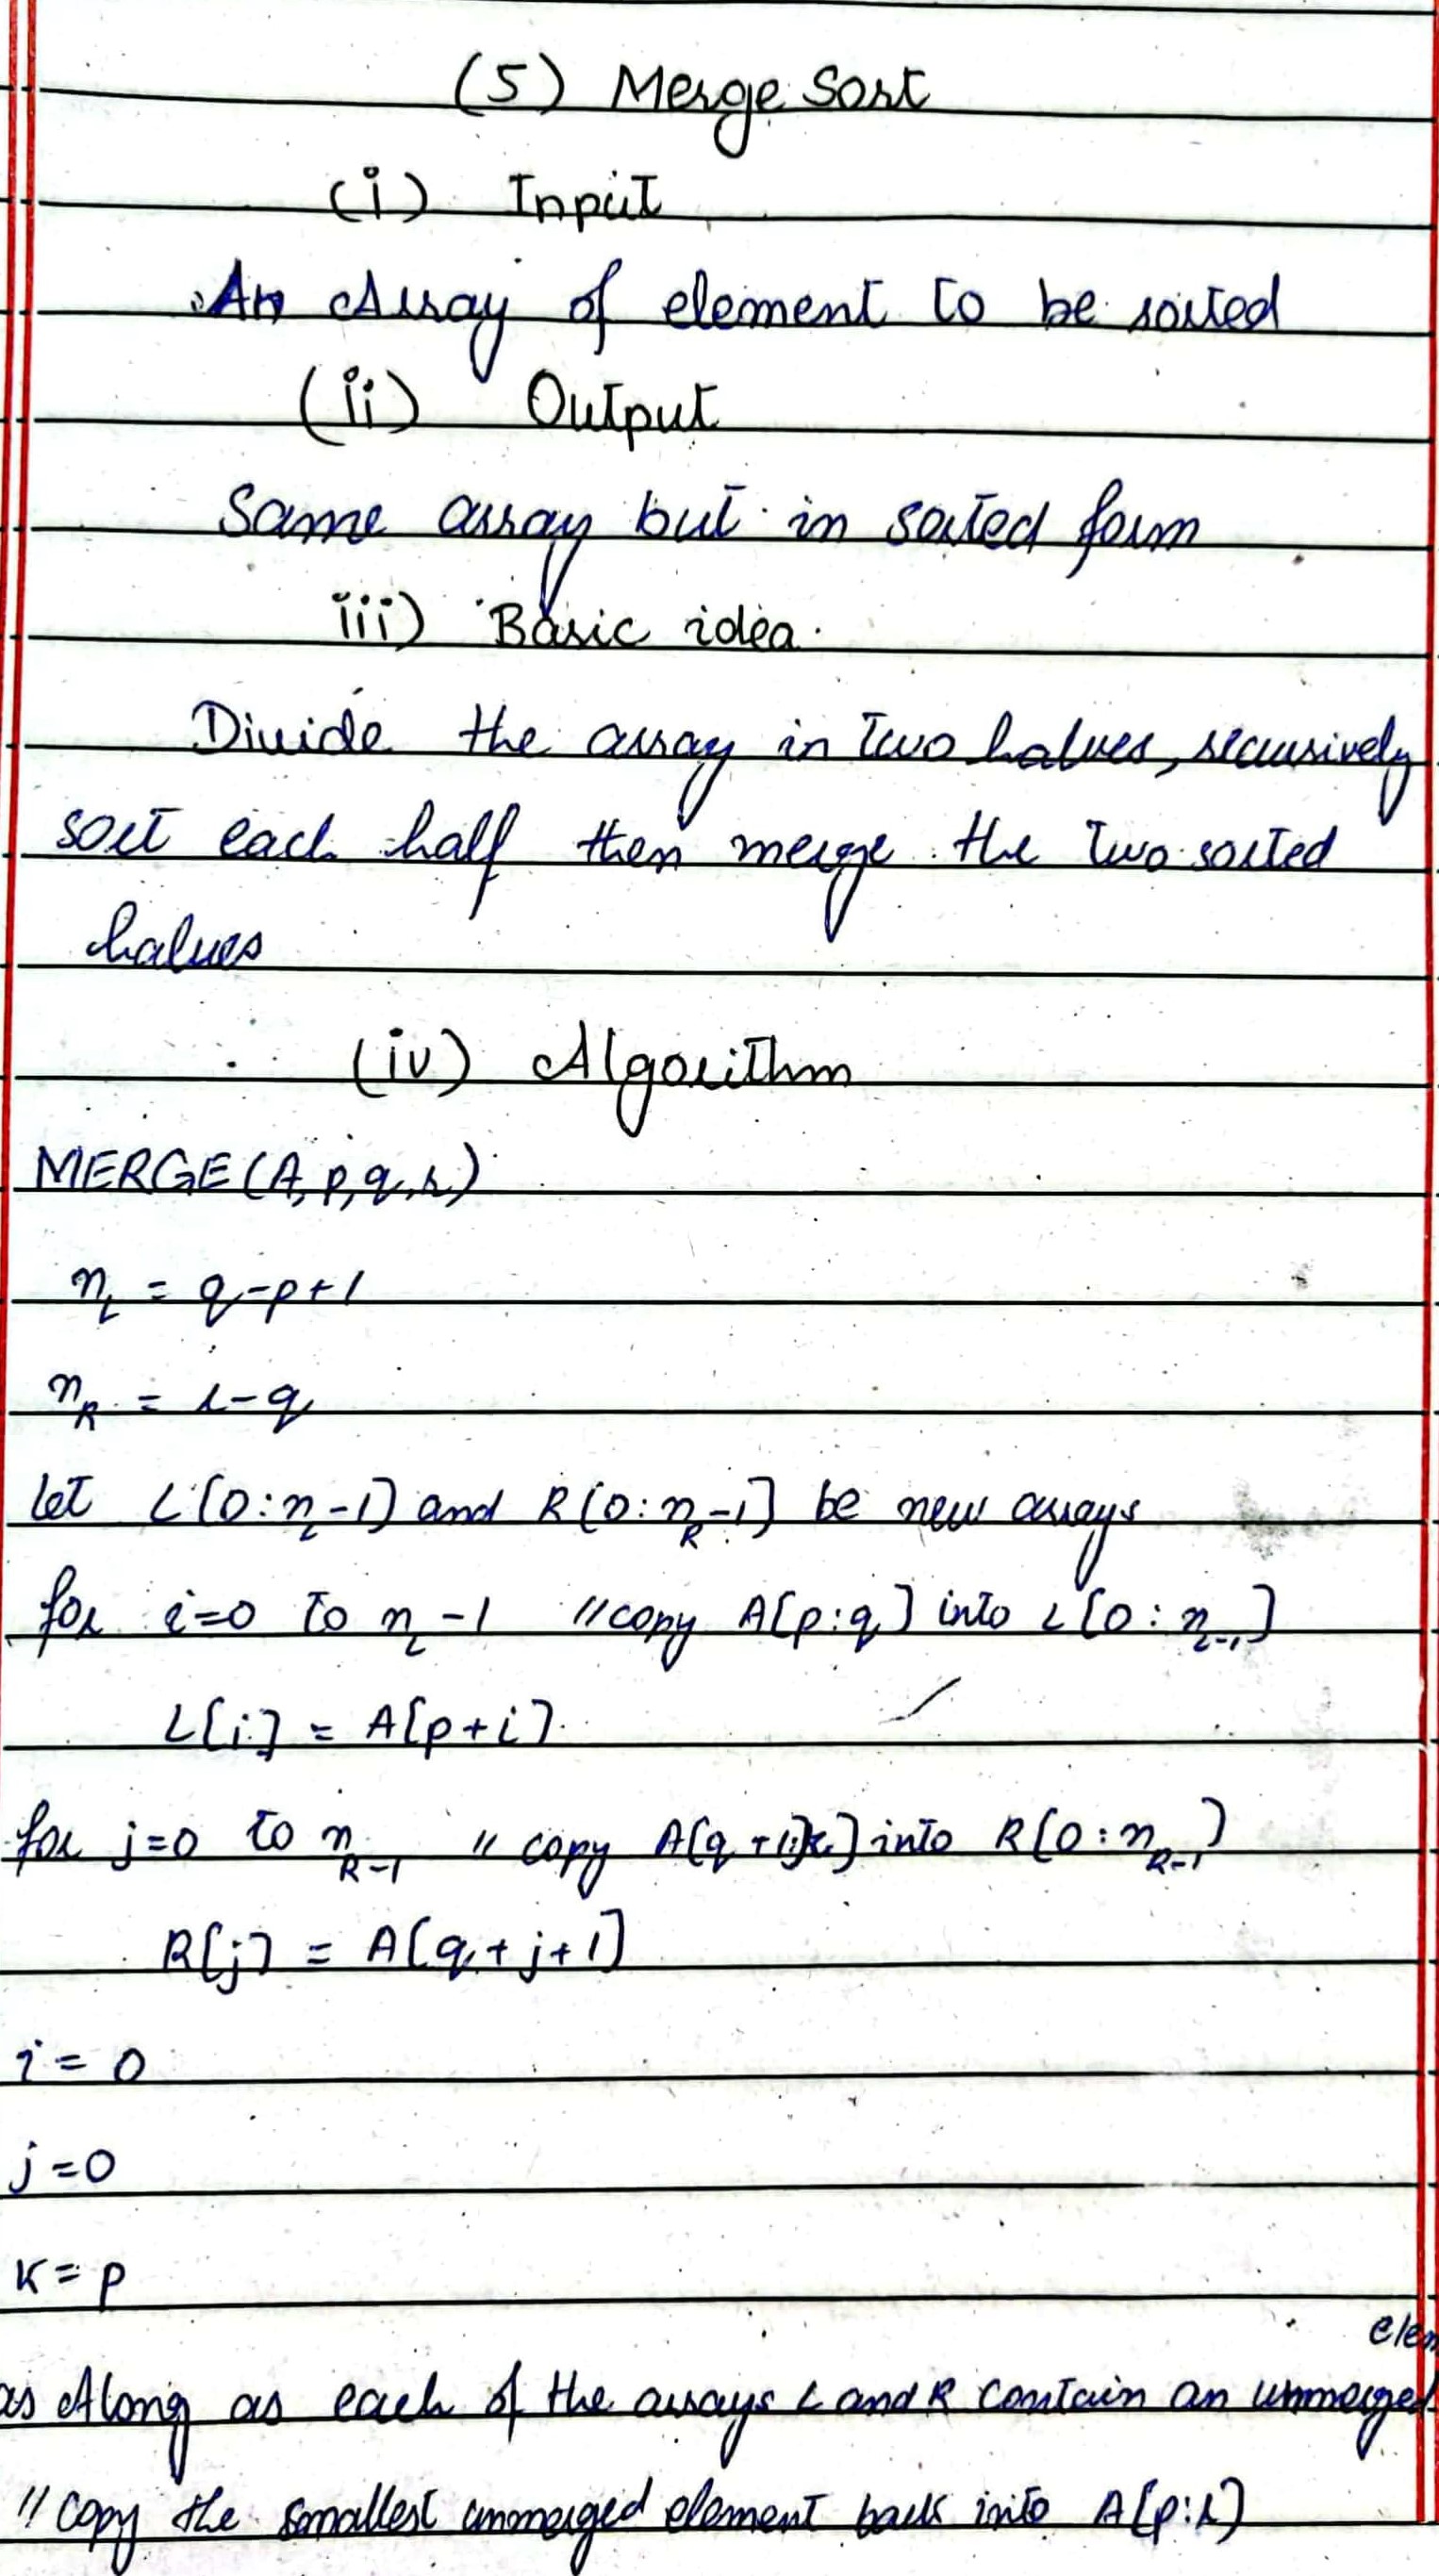 (5) Merge Sort
(i) Input
An Array of element to be sorted
(ii) Output
Same array but in sorted form
iii) Basic idea.
Divide the array in two halves, recursively
sort each half then merge the two sorted
halves
(iv) Algorithm
MERGE(A,p,q,r)
n_L = q-p+1
n_R = r-q
let L[0:n_L-1] and R[0:n_R-1] be new arrays
for i=0 to n_L-1 //copy A[p:q] into L[0:n_L-1]
L[i] = A[p+i]
for j=0 to n_R-1 // copy A[q+1:r] into R[0:n_R-1]
R[j] = A[q+j+1]
i = 0
j=0
k = p
elem
as Along as each of the arrays L and R contain an unmerged
// copy the smallest unmerged element back into A[p:r]